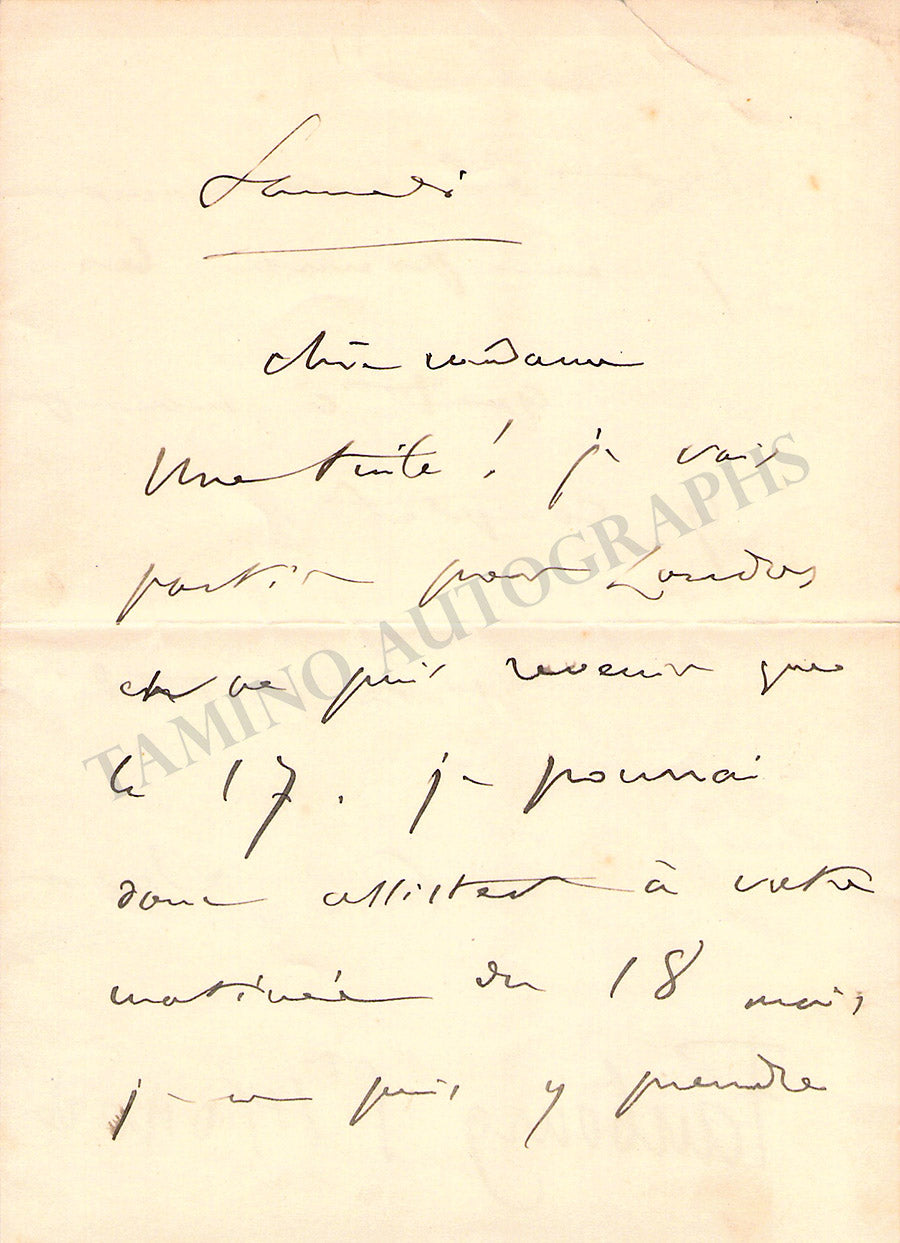 Samedi
chère madame
Une tuile ! je vais
partir pour Londres
et ne puis revenir que
le 17. je pourrai
donc assister à votre
matinée du 18 mais
je ne puis y prendre
TAMINO AUTOGRAPHS